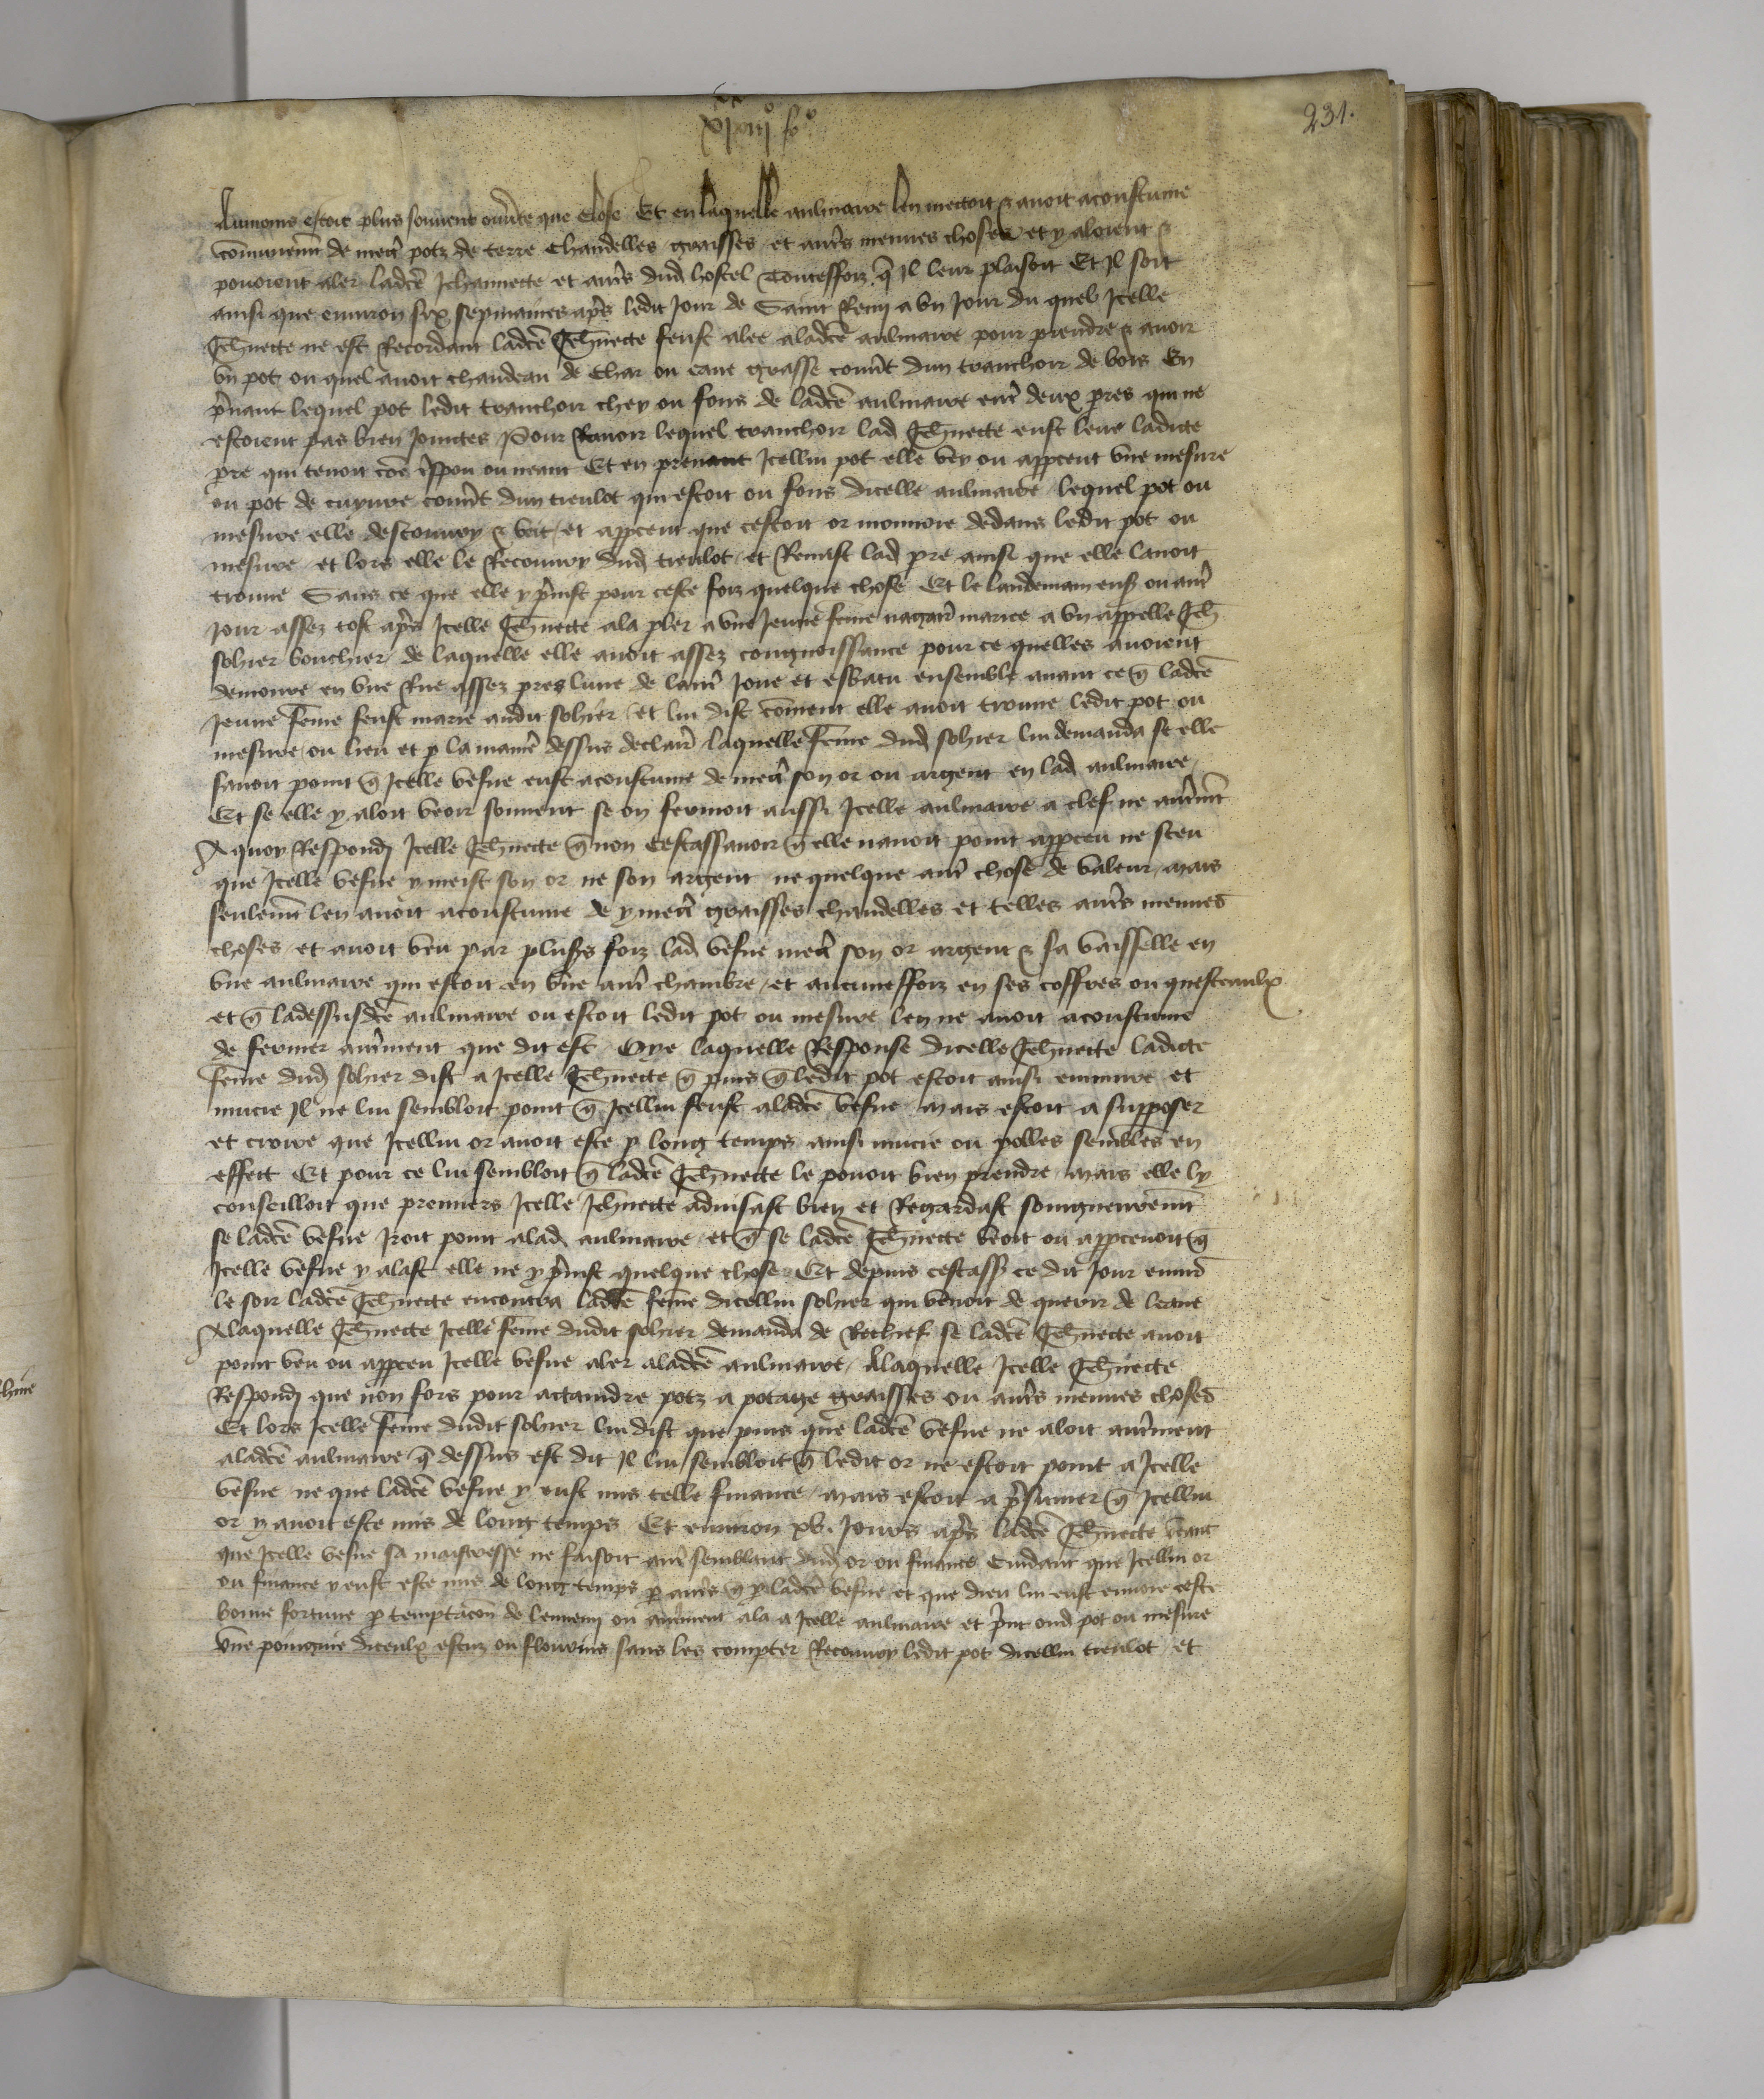 231.
Aumoins estoit plus souvent ouvte que close Et en laquelle aulmaire len mectoit & avoit acoustume
communemt de mectr potz de terre chandelles graisses et autrs menues choses et y aloient &
povoient aler ladce Jehannette et autrs dud hostel Toutesfoiz q Il leur plaisoit Et Il soit
ainsi que environ six sepmaines aprs ledit Jour de Saint Remy a un Jour du quel Icelle
Jehnecte ne est Recordant ladce Jehnecte feust alee a ladce aulmaire pour prendre & avoir
un pot ou quel avoit chaudeau de char ou eaue grasse couvt dun tranchoir de bois En
prnant lequel pot ledit tranchoir chey ou fons de ladce aulmaire entr deux pres qui ne
estoient pas bien Joinctes Pour Ravoir lequel tranchoir lad Jehnecte eust leve ladicte
pre qui tenoit coe Ispou ou neant Et en prenant Icellui pot elle vey ou appceut une mesure
ou pot de cuyvre couvt dun tieulot qui estoit ou fons dicelle aulmaire lequel pot ou
mesure elle descouvry & veit et appceut que cestoit or monnoie dedans ledit pot ou
mesure et lors elle le Recouvry dud tieulot et Remist lad pre ainsi que elle lavoit
trouve Sans ce que elle y prinst pour ceste foiz quelque chose Et le landemain ens ou autr
Jour assez tost aprs Icelle Jehnecte ala pler a une Jeune feme nagair mariee a un appelle Jeh
sohier bouchier de laquelle elle avoit assez congnoissance pour ce quelles avoient
demoure en une Rue assez pres lune de lautr Joue et esbatu ensemble avant ce q ladce
Jeune feme feust mariee audit sohier et lui dist coment elle avoit trouve ledit pot ou
mesure ou lieu et p la manier dessus declair laquelle feme dud sohier lui demanda se elle
savoit point q Icelle vefue eust acoustume de mectr son or ou argent en lad aulmaire
Et se elle y aloit veoir souvent se on fermoit aussi Icelle aulmaire a clef ne autrmt
A quoy Respondj Icelle Jehnecte q non cestassavoir q elle navoit point appceu ne sceu
que Icelle vefue y meist son or ne son argent ne quelque autr chose de valeur mais
seulemt len avoit acoustume de y mectr graisses chandelles et telles autrs menues
choses et avoit veu par plussrs foiz lad vefue mectr son or argent & sa vaisselle en
une aulmaire qui estoit en une autr chambre et aucuneffoiz en ses coffres ou questeaulx
et q ladessusdce aulmaire ou estoit ledit pot ou mesure len ne avoit acoustume
de fermer autrment que dit est Oye laquelle Response dicelle Jehnecte ladicte
feme dud sohier dist a Icelle Jehnecte q puis q ledit pot estoit ainsi enmure et
mucie Il ne lui sembloit point q Icellui feust a ladce vefue mais estoit a supposer
et croire que Icellui or avoit este p long temps ainsi mucie ou polles sembles en
effect Et pour ce lui sembloit q ladce Jehnecte le povoit bien prendre mais elle ly
conseilloit que premiers Icelle Jehnecte advisast bien et Regardast songneusemt
se ladce vefue Iroit point a lad aulmaire et q se ladce Jehnecte veoit ou appcevoit q
Icelle vefue y alast elle ne y prinst quelque chose Et depuis cestass ce dit Jour envir
le soir ladce Jehnecte encontra ladce feme dicellui sohier qui venoit de querir de leaue
A laquelle Jehnecte Icelle feme dudit sohier demanda de Rechief se ladce Jehnecte avoit
point veu ou appceu Icelle vefue aler a ladce aulmaire A laquelle Icelle Jehnecte
Respondj que non fors pour actaindre potz a potage graisses ou autrs menues choses
Et lors Icelle feme dudit sohier lui dist que puis que ladce vefue ne aloit autrment
a ladce aulmaire q dessus est dit Il lui sembloit q ledit or ne estoit point a Icelle
vefue ne que ladce vefue y eust mis telle finance mais estoit a prsumer q Icellui
or y avoit este mis de long temps Et environ xv. Jours aprs ladce Jehnecte veant
que Icelle vefue sa maistresse ne faisoit autr semblant dud or ou finance Cuidant que Icellui or
ou finance y eust este mis de long temps p autrs q p ladce vefue et que dieu lui eust envoie ceste
bonne fortune p temptacon de lennemj ou autrment ala a Icelle aulmaire et prnt oud pot ou mesure
une poingnie diceulx escuz ou flourins sans les compter Recouvry ledit pot dicellui tieulot et